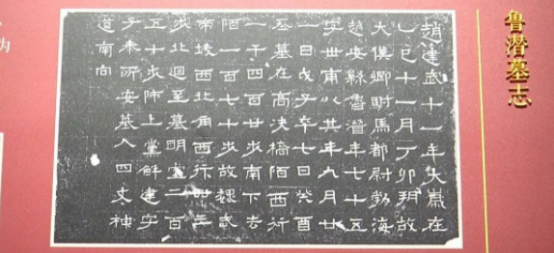 鲁潜墓志
趙建武十一年大歲在
乙巳十一月丁卯朔故
大僕卿駙馬都尉勃海
趙安縣魯潛年七十五
字世甫以其年九月廿
一日戊子卒七日癸酉
葬墓在高決橋陌西行
一千四百廿步南下去
陌一百七十步故魏武
帝陵西北角西行卌三
步北迴至墓明堂二百
五十步師上黨解建字
子泰所安墓入四丈神
道南向
为